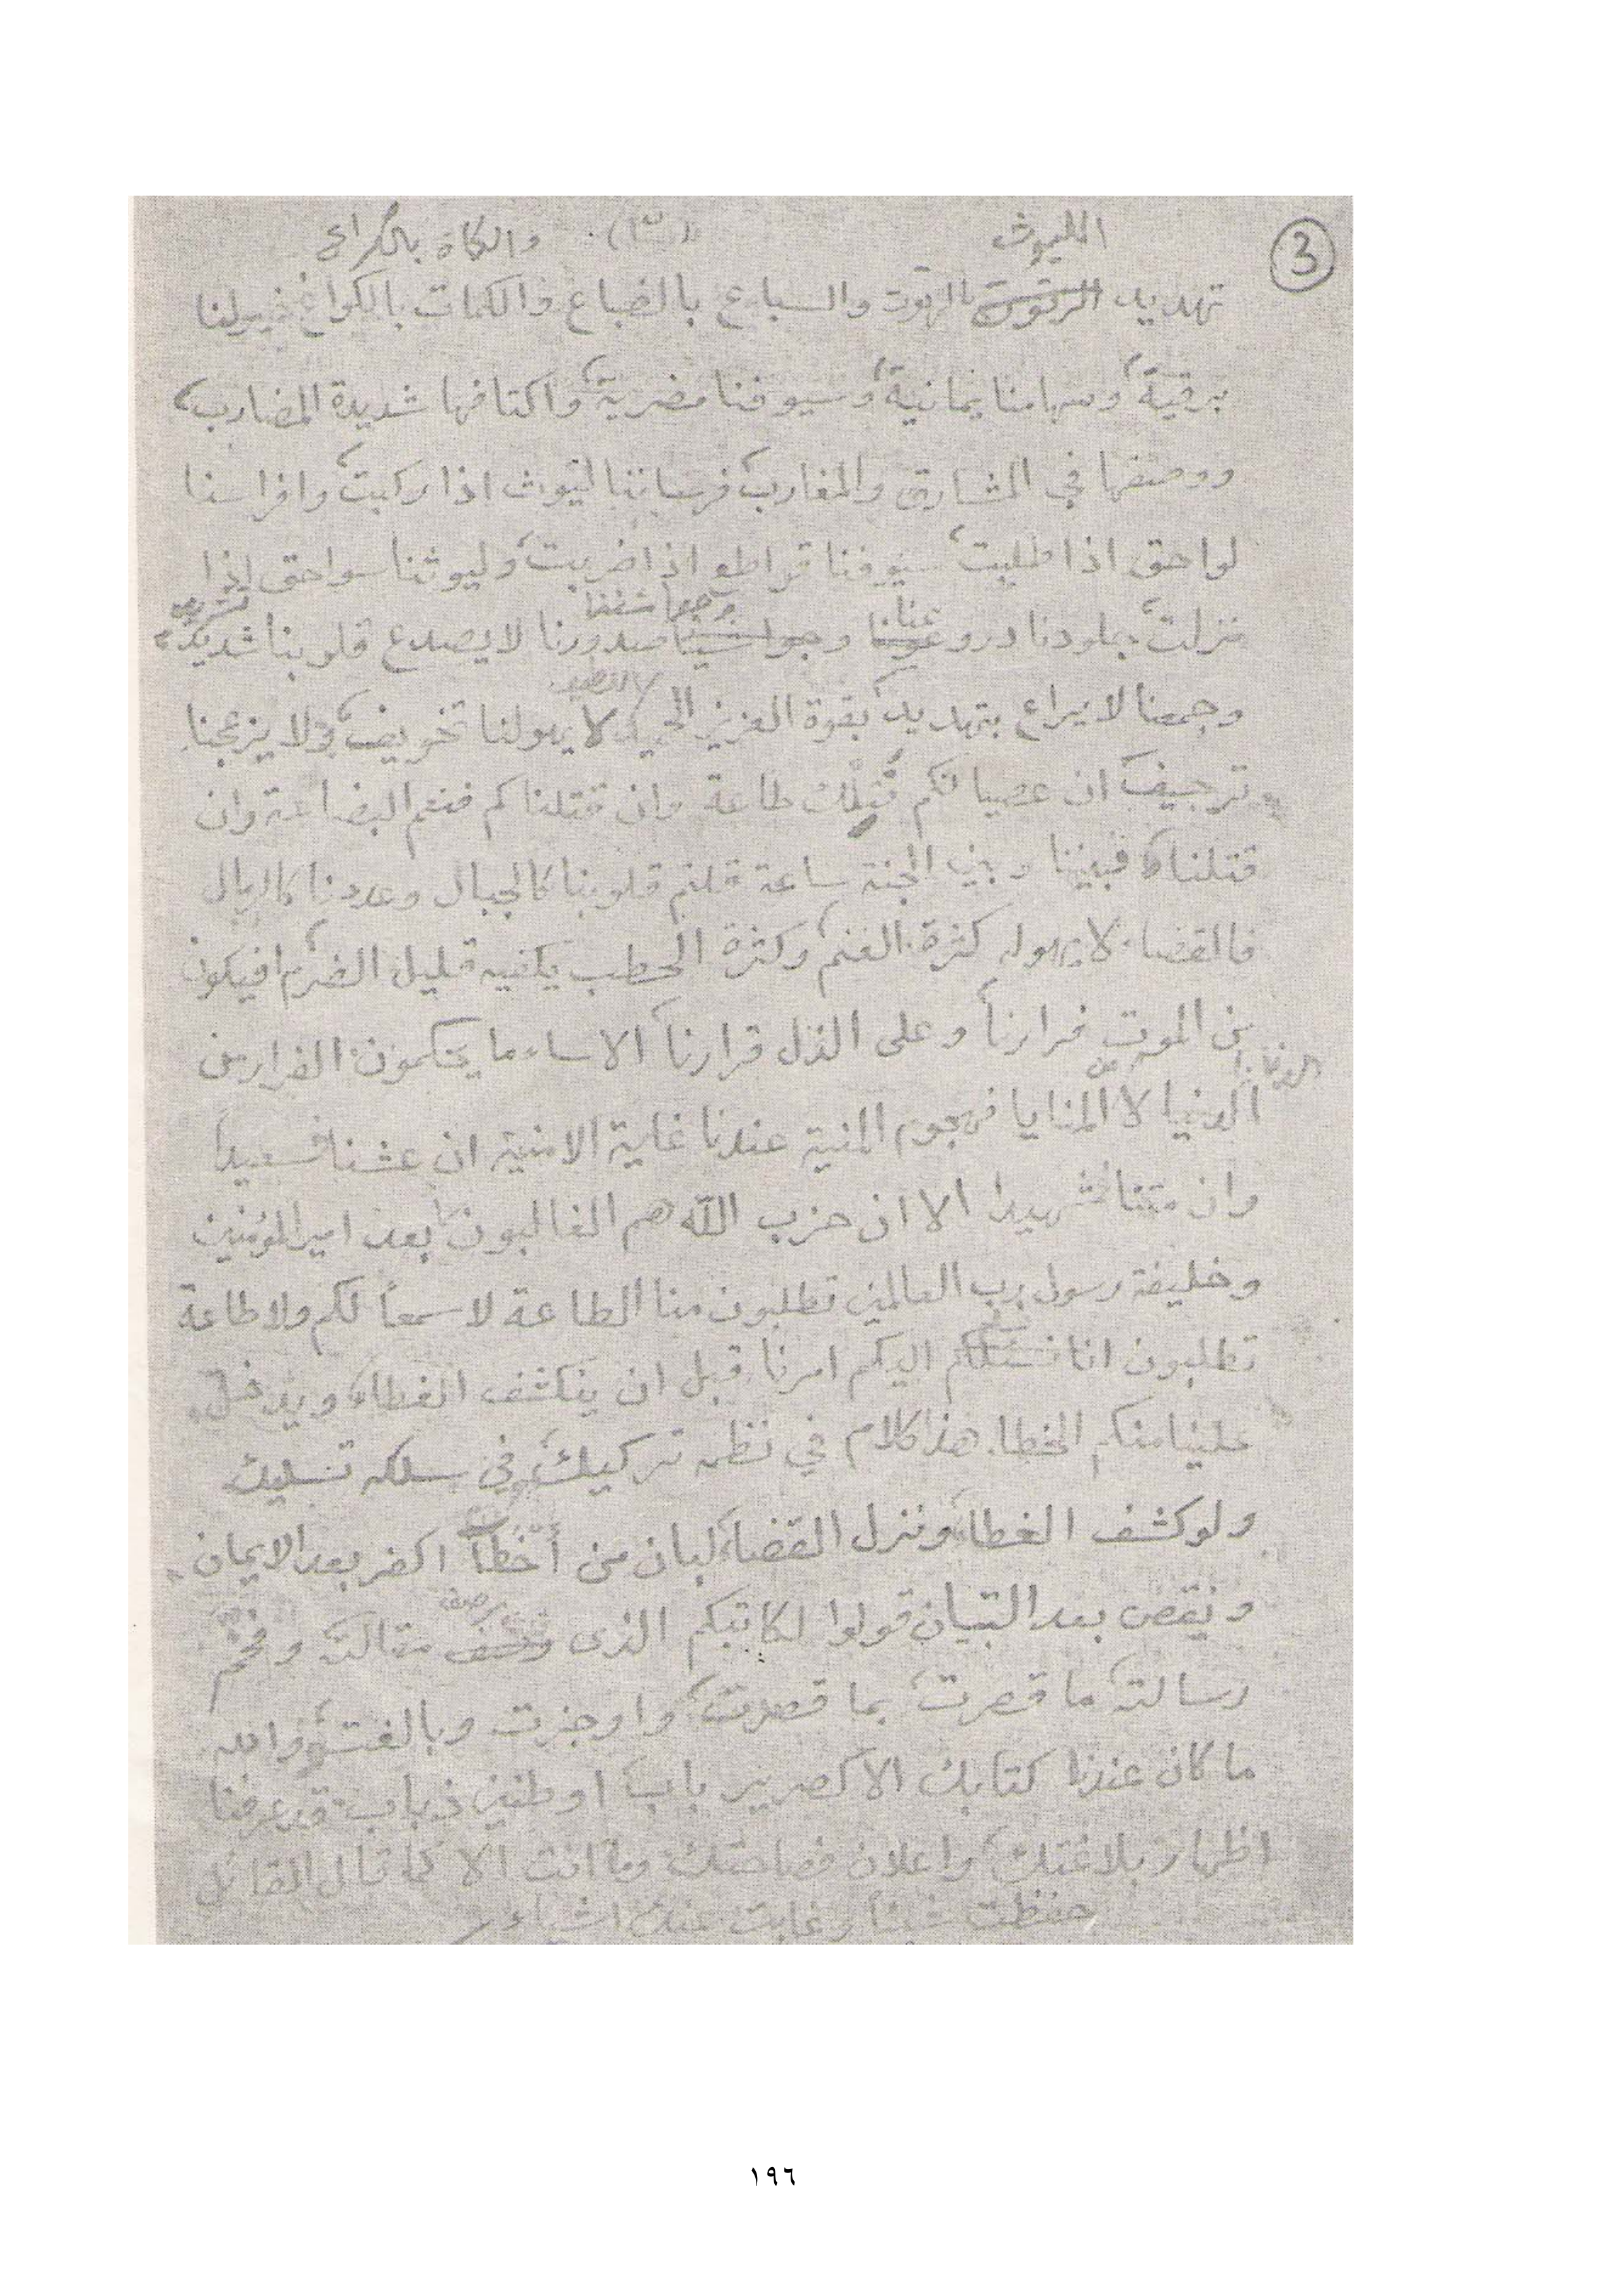 3
الليوث (٣) والكماة بالكراع
تهديد الرتوت بالهوت والسباع بالضباع والكمات بالكواع خيولنا
برقية، وسهامنا يمانية، وسيوفنا مضرية، واكتافها شديدة المضارب،
ووصفها في المشارق والمغارب، فرساننا ليوث اذا ركبت، وافراسنا
لواحق اذا طلبت، سيوفنا قواطع اذا ضربت، وليوثنا سواحق اذا
نزلت، جلودنا دروعنا وجواشننا صدورنا لا يصدع قلوبنا شديد،
وجمعنا لا يراع بتهديد، بقوة العزيز الحميد لا يهولنا تخويف، ولا يزعجنا
ترجيف، ان عصيانكم تلك طاعة وان قتلناكم فنعم البضاعة وان
قتلنا فبيننا وبين الجنة ساعة قلتم قلوبنا كالجبال وعددنا كالرمال
فالقصاب لا يهوله كثرة الغنم، وكثرة الحطب يكفيه قليل الضرم، افيكون
من الموت فرارنا، وعلى الذل قرارنا، الا ساء ما يحكمون، الفرار من
الدنايا
الدنيا لا المنايا فهجوم المنية عندنا غاية الامنية ان عشنا فسعيدا
وان متنا شهيدا الا ان حزب الله هم الغالبون، ابعد امير المؤمنين
وخليفة رسول رب العالمين تطلبون منا الطاعة لا سمعاً لكم ولا طاعة
تطلبون انا اليكم امرنا، قبل ان ينكشف الغطاء، ويدخل
علينا منكم الخطا. هذا كلام في نظمه تركيك، وفي سلكه تسليك
ولو كشف الغطاء، ونزل القضاء، لبان من أخطأ اكفر بعد الايمان
ونقض بعد التبيان قولوا لكاتبكم الذى رصف مقالته وفخم
رسالته، ما قصرت، بما قصدت، واوجزت وبالغت، والله
ما كان عندنا كتابك الا كصرير باب، او طنين ذباب، قد عرفنا
اظهار بلاغتك، واعلان فصاحتك وما انت الا كما قال القائل
حفظت شيئاً وغابت عنك اشياء
١٩٦